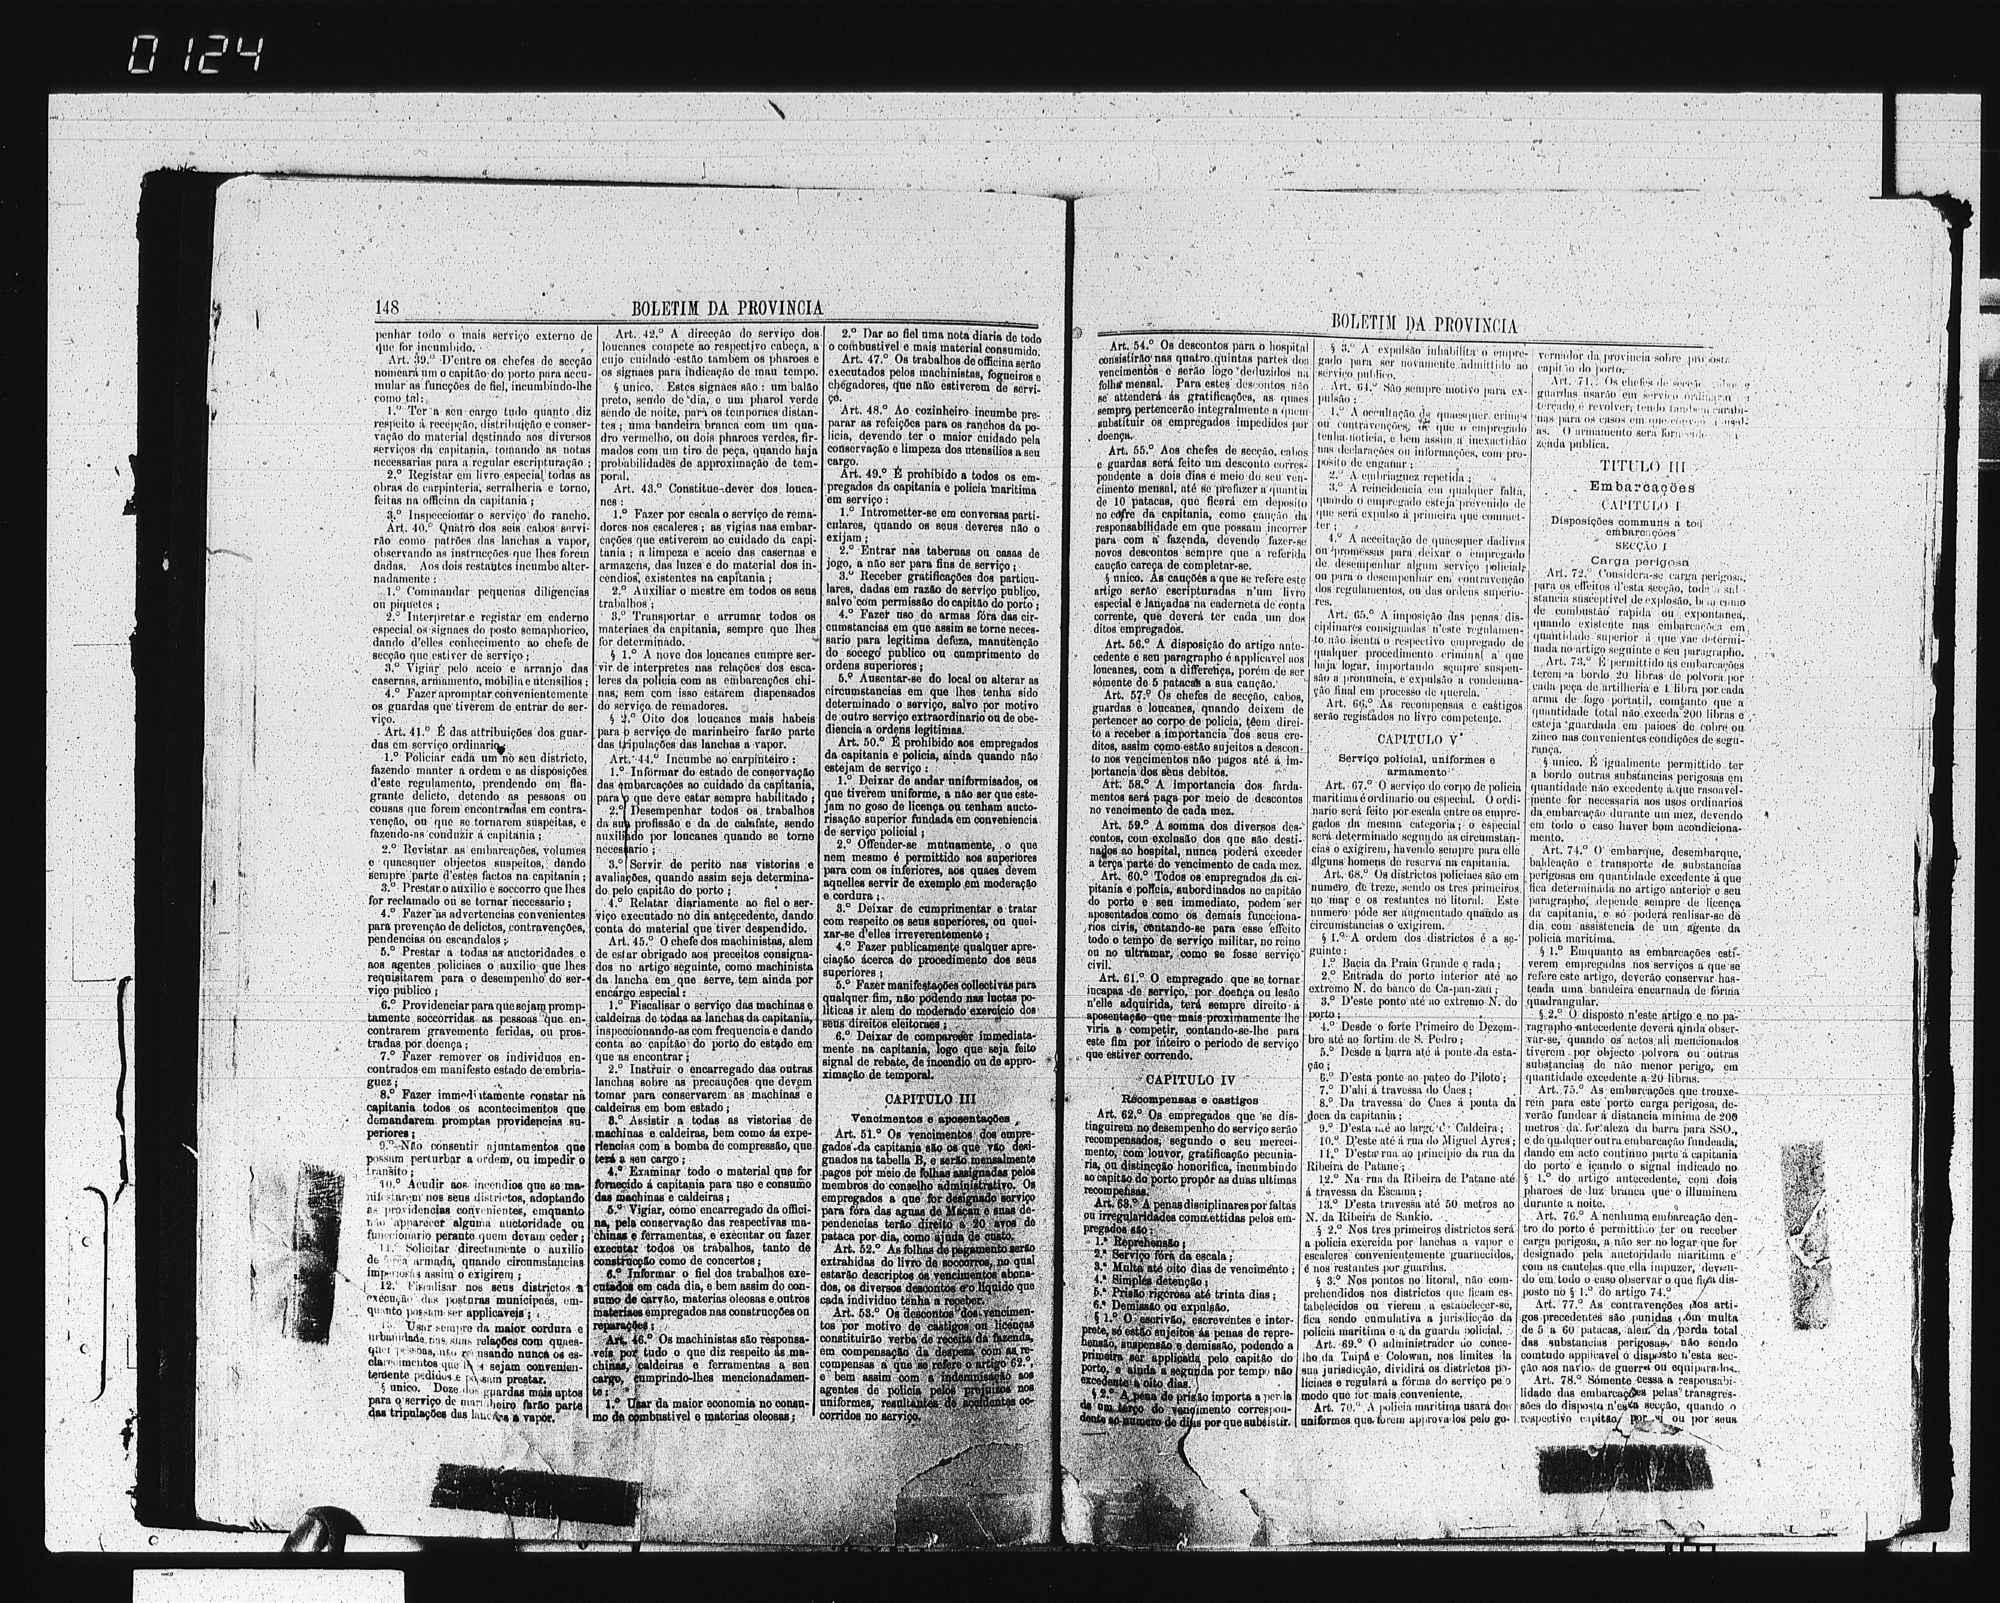 0124
148
BOLETIM DA PROVINCIA
penhar todo o mais serviço externo de
que for incumbido.
Art. 39.º D'entre os chefes de secção
nomeará um o capitão do porto para accu-
mular as funcções de fiel, incumbindo-lhe
como tal:
1.º Ter a seu cargo tudo quanto diz
respeito á recepção, distribuição e conser-
vação do material destinado aos diversos
serviços da capitania, tomando as notas
necessarias para a regular escripturação;
2.º Registar em livro especial todas as
obras de carpinteria, serralheria e torno,
feitas na officina da capitania;
3.º Inspeccionar o serviço do rancho.
Art. 40.º Quatro dos seis cabos servi-
rão como patrões das lanchas a vapor,
observando as instrucções que lhes forem
dadas. Aos dois restantes incumbe alter-
nadamente:
1.º Commandar pequenas diligencias
ou piquetes;
2.º Interpretar e registar em caderno
especial os signaes do posto semaphorico,
dando d'elles conhecimento ao chefe de
secção que estiver de serviço;
3.º Vigiar pelo aceio e arranjo das
casernas, armamento, mobilia e utensilios;
4.º Fazer apromptar convenientemente
os guardas que tiverem de entrar de ser-
viço.
Art. 41.º É das attribuições dos guar-
das em serviço ordinario:
1.º Policiar cada um no seu districto,
fazendo manter a ordem e as disposições
d'este regulamento, prendendo em fla-
grante delicto, detendo as pessoas ou
cousas que forem encontradas em contra-
venção, ou que se tornarem suspeitas, e
fazendo-as conduzir á capitania;
2.º Revistar as embarcações, volumes
e quaesquer objectos suspeitos, dando
sempre parte d'estes factos na capitania;
3.º Prestar o auxilio e soccorro que lhes
for reclamado ou se tornar necessario;
4.º Fazer as advertencias convenientes
para prevenção de delictos, contravenções,
pendencias ou escandalos;
5.º Prestar a todas as auctoridades e
aos agentes policiaes o auxilio que lhes
requisitarem para o desempenho do ser-
viço publico;
6.º Providenciar para que sejam promp-
tamente soccorridas as pessoas que en-
contrarem gravemente feridas, ou pros-
tradas por doença;
7.º Fazer remover os individuos en-
contrados em manifesto estado de embria-
guez;
8.º Fazer immediatamente constar na
capitania todos os acontecimentos que
demandarem promptas providencias su-
periores;
9.º Não consentir ajuntamentos que
possam perturbar a ordem, ou impedir o
transito;
10.º Acudir aos incendios que se ma-
nifestarem nos seus districtos, adoptando
as providencias convenientes, emquanto
não apparecer alguma auctoridade ou
funccionario perante quem devam ceder;
11.º Solicitar directamente o auxilio
de força armada, quando circumstancias
imperiosas assim o exigirem;
12.º Fiscalisar nos seus districtos a
execução das posturas municipaes, em-
quanto possam ser applicaveis;
Usar sempre da maior cordura e
urbanidade nas suas relações com quaes-
quer pessoas, não recusando nunca os es-
clarecimentos que lhes sejam convenien-
temente pedidos e possam prestar.
§ unico. Doze dos guardas mais aptos
para o serviço de marinheiro farão parte
das tripulações das lanchas a vapor.
Art. 42.º A direcção do serviço dos
loucanes compete ao respectivo cabeça, a
cujo cuidado estão tambem os pharoes e
os signaes para indicação de mau tempo.
§ unico. Estes signaes são: um balão
preto, sendo de dia, e um pharol verde
sendo de noite, para os temporaes distan-
tes; uma bandeira branca com um qua-
dro vermelho, ou dois pharoes verdes, fir-
mados com um tiro de peça, quando haja
probabilidades de approximação de tem-
poral.
Art. 43.º Constitue dever dos louca-
nes:
1.º Fazer por escala o serviço de rema-
dores nos escaleres; as vigias nas embar-
cações que estiverem ao cuidado da capi-
tania; a limpeza e aceio das casernas e
armazens, das luzes e do material dos in-
cendios, existentes na capitania;
2.º Auxiliar o mestre em todos os seus
trabalhos;
3.º Transportar e arrumar todos os
materiaes da capitania, sempre que lhes
for determinado.
§ 1.º A nove dos loucanes cumpre ser-
vir de interpretes nas relações dos esca-
leres da policia com as embarcações chi-
nas, sem com isso estarem dispensados
do serviço de remadores.
§ 2.º Oito dos loucanes mais habeis
para o serviço de marinheiro farão parte
das tripulações das lanchas a vapor.
Art. 44.º Incumbe ao carpinteiro:
1.º Informar do estado de conservação
das embarcações ao cuidado da capitania,
para o que deve estar sempre habilitado;
2.º Desempenhar todos os trabalhos
da sua profissão e da de calafate, sendo
auxiliado por loucanes quando se torne
necessario;
3.º Servir de perito nas vistorias e
avaliações, quando assim seja determina-
do pelo capitão do porto;
4.º Relatar diariamente ao fiel o ser-
viço executado no dia antecedente, dando
conta do material que tiver despendido.
Art. 45.º O chefe dos machinistas, alem
de estar obrigado aos preceitos consigna-
dos no artigo seguinte, como machinista
da lancha em que serve, tem ainda por
encargo especial:
1.º Fiscalisar o serviço das machinas e
caldeiras de todas as lanchas da capitania,
inspeccionando-as com frequencia e dando
conta ao capitão do porto do estado em
que as encontrar;
2.º Instruir o encarregado das outras
lanchas sobre as precauções que devem
tomar para conservarem as machinas e
caldeiras em bom estado;
3.º Assistir a todas as vistorias de
machinas e caldeiras, bem como ás expe-
riencias com a bomba de compressão, que
terá a seu cargo;
4.º Examinar todo o material que for
fornecido á capitania para uso e consumo
das machinas e caldeiras;
5.º Vigiar, como encarregado da offici-
na, pela conservação das respectivas ma-
chinas e ferramentas, e executar ou fazer
executar todos os trabalhos, tanto de
construcção como de concertos;
6.º Informar o fiel dos trabalhos exe-
cutados em cada dia, e bem assim do con-
sumo de carvão, materias oleosas e outros
materiaes empregados nas construcções ou
reparações;
Art. 46.º Os machinistas são responsa-
veis por tudo o que diz respeito ás ma-
chinas, caldeiras e ferramentas a seu
cargo, cumprindo-lhes mencionadamen-
te:
1.º Usar da maior economia no consu-
mo de combustivel e materias oleosas;
2.º Dar ao fiel uma nota diaria de todo
o combustivel e mais material consumido.
Art. 47.º Os trabalhos de officina serão
executados pelos machinistas, fogueiros e
chegadores, que não estiverem de servi-
ço.
Art. 48.º Ao cozinheiro incumbe pre-
parar as refeições para os ranchos da po-
licia, devendo ter o maior cuidado pela
conservação e limpeza dos utensilios a seu
cargo.
Art. 49.º É prohibido a todos os em-
pregados da capitania e policia maritima
em serviço:
1.º Intrometter-se em conversas parti-
culares, quando os seus deveres não o
exijam;
2.º Entrar nas tabernas ou casas de
jogo, a não ser para fins de serviço;
3.º Receber gratificações dos particu-
lares, dadas em razão de serviço publico,
salvo com permissão do capitão do porto;
4.º Fazer uso de armas fóra das cir-
cumstancias em que assim se torne neces-
sario para legitima defeza, manutenção
do socego publico ou cumprimento de
ordens superiores;
5.º Ausentar-se do local ou alterar as
circumstancias em que lhes tenha sido
determinado o serviço, salvo por motivo
de outro serviço extraordinario ou de obe-
diencia a ordens legitimas.
Art. 50.º É prohibido aos empregados
da capitania e policia, ainda quando não
estejam de serviço:
1.º Deixar de andar uniformisados, os
que tiverem uniforme, a não ser que este-
jam no goso de licença ou tenham aucto-
risação superior fundada em conveniencia
de serviço policial;
2.º Offender-se mutuamente, o que
nem mesmo é permittido aos superiores
para com os inferiores, aos quaes devem
aquelles servir de exemplo em moderação
e cordura;
3.º Deixar de cumprimentar e tratar
com respeito os seus superiores, ou quei-
xar-se d'elles irreverentemente;
4.º Fazer publicamente qualquer apre-
ciação ácerca do procedimento dos seus
superiores;
5.º Fazer manifestações collectivas para
qualquer fim, não podendo nas luctas po-
liticas ir alem do moderado exercicio dos
seus direitos eleitoraes;
6.º Deixar de comparecer immediata-
mente na capitania, logo que seja feito
signal de rebate, de incendio ou de appro-
ximação de temporal.
CAPITULO III
Vencimentos e aposentações
Art. 51.º Os vencimentos dos empre-
gados da capitania são os que vão desi-
gnados na tabella B, e serão mensalmente
pagos por meio de folhas assignadas pelos
membros do conselho administrativo. Os
empregados a que for designado serviço
para fóra das aguas de Macau e suas de-
pendencias terão direito a 20 avos de
pataca por dia, como ajuda de custo.
Art. 52.º As folhas de pagamento serão
extrahidas do livro de soccorros, no qual
estarão descriptos os vencimentos abona-
dos, os diversos descontos e o liquido que
cada individuo tenha a receber.
Art. 53.º Os descontos dos vencimen-
tos por motivo de castigos ou licenças
constituirão verba de receita da fazenda,
em compensação da despeza com as re-
compensas a que se refere o artigo 62.º,
e bem assim com a indemnisação aos
agentes de policia pelos prejuizos nos
uniformes, resultantes de accidentes oc-
corridos no serviço.
BOLETIM DA PROVINCIA
Art. 54.º Os descontos para o hospital
consistirão nas quatro quintas partes dos
vencimentos e serão logo deduzidos na
folha mensal. Para estes descontos não
se attenderá ás gratificações, as quaes
sempre pertencerão integralmente a quem
substituir os empregados impedidos por
doença.
Art. 55.º Aos chefes de secção, cabos
e guardas será feito um desconto corres-
pondente a dois dias e meio do seu ven-
cimento mensal, até se prefazer a quantia
de 10 patacas, que ficará em deposito
no cofre da capitania, como caução da
responsabilidade em que possam incorrer
para com a fazenda, devendo fazer-se
novos descontos sempre que a referida
caução careça de completar-se.
§ unico. As cauções a que se refere este
artigo serão escripturadas n'um livro
especial e lançadas na caderneta de conta
corrente, que deverá ter cada um dos
ditos empregados.
Art. 56.º A disposição do artigo ante-
cedente e seu paragrapho é applicavel aos
loucanes, com a differença, porém de ser
sómente de 5 patacas a sua caução.
Art. 57.º Os chefes de secção, cabos,
guardas e loucanes, quando deixem de
pertencer ao corpo de policia, têem direi-
to a receber a importancia dos seus cre-
ditos, assim como estão sujeitos a descon-
to nos vencimentos não pagos até á im-
portancia dos seus debitos.
Art. 58.º A importancia dos farda-
mentos será paga por meio de descontos
no vencimento de cada mez.
Art. 59.º A somma dos diversos des-
contos, com exclusão dos que são desti-
nados ao hospital, nunca poderá exceder
a terça parte do vencimento de cada mez.
Art. 60.º Todos os empregados da ca-
pitania e policia, subordinados ao capitão
do porto e seu immediato, podem ser
aposentados como os demais funcciona-
rios civis, contando-se para esse effeito
todo o tempo de serviço militar, no reino
ou no ultramar, como se fosse serviço
civil.
Art. 61.º O empregado que se tornar
incapaz de serviço, por doença ou lesão
n'elle adquirida, terá sempre direito á
aposentação que mais proximamente lhe
viria a competir, contando-se-lhe para
este fim por inteiro o periodo de serviço
que estiver correndo.
CAPITULO IV
Recompensas e castigos
Art. 62.º Os empregados que se dis-
tinguirem no desempenho do serviço serão
recompensados, segundo o seu mereci-
mento, com louvor, gratificação pecunia-
ria, ou distincção honorifica, incumbindo
ao capitão do porto propôr as duas ultimas
recompensas.
Art. 63.º A penas disciplinares por faltas
ou irregularidades commettidas pelos em-
pregados são:
1.ª Reprehensão;
2.ª Serviço fóra da escala;
3.ª Multa até oito dias de vencimento;
4.ª Simples detenção;
5.ª Prisão rigorosa até trinta dias;
6.ª Demissão ou expulsão.
§ 1.º O escrivão, escreventes e inter-
prete, só estão sujeitos ás penas de repre-
hensão, suspensão e demissão, podendo a
primeira ser applicada pelo capitão do
porto, e ainda a segunda por tempo não
excedente a oito dias.
§ 2.º A pena de prisão importa a perda
de um terço do vencimento correspon-
dente ao numero de dias por que subsistir.
§ 3.º A expulsão inhabilita o empre-
gado para ser novamente admittido ao
serviço publico.
Art. 64.º São sempre motivo para ex-
pulsão:
1.º A occultação de quaesquer crimes
ou contravenções, de que o empregado
tenha noticia, e bem assim a inexactidão
nas declarações ou informações, com pro-
posito de enganar;
2.º A embriaguez repetida;
3.º A reincidencia em qualquer falta,
quando o empregado esteja prevenido de
que será expulso á primeira que commet-
ter;
4.º A acceitação de quaesquer dadivas
ou promessas para deixar o empregado
de desempenhar algum serviço policial,
ou para o desempenhar em contravenção
dos regulamentos, ou das ordens superio-
res.
Art. 65.º A imposição das penas dis-
ciplinares consignadas n'este regulamen-
to não isenta o respectivo empregado de
qualquer procedimento criminal a que
haja logar, importando sempre suspen-
são a pronuncia, e expulsão a condemna-
ção final em processo de querela.
Art. 66.º As recompensas e castigos
serão registados no livro competente.
CAPITULO V
Serviço policial, uniformes e
armamento
Art. 67.º O serviço do corpo de policia
maritima é ordinario ou especial. O ordi-
nario será feito por escala entre os empre-
gados da mesma categoria; o especial
será determinado segundo as circumstan-
cias o exigirem, havendo sempre para elle
alguns homens de reserva na capitania.
Art. 68.º Os districtos policiaes são em
numero de treze, sendo os tres primeiros
no mar e os restantes no litoral. Este
numero póde ser augmentado quando as
circumstancias o exigirem.
§ 1.º A ordem dos districtos é a se-
guinte:
1.º Bacia da Praia Grande e rada;
2.º Entrada do porto interior até ao
extremo N. do banco de Ca-pan-zau;
3.º D'este ponto até ao extremo N. do
porto;
4.º Desde o forte Primeiro de Dezem-
bro até ao fortim de S. Pedro;
5.º Desde a barra até á ponte da esta-
ção;
6.º D'esta ponte ao pateo do Piloto;
7.º D'ahi á travessa do Caes;
8.º Da travessa do Caes á ponta da
doca da capitania;
9.º D'esta até ao largo Caldeira;
10.º D'este até á rua do Miguel Ayres;
11.º D'esta rua ao principio da rua da
Ribeira de Patane;
12.º Na rua da Ribeira de Patane até
á travessa da Escama;
13.º D'esta travessa até 50 metros ao
N. da Ribeira de Sankio.
§ 2.º Nos tres primeiros districtos será
a policia exercida por lanchas a vapor e
escaleres convenientemente guarnecidos,
e nos restantes por guardas.
§ 3.º Nos pontos no litoral, não com-
prehendidos nos districtos que ficam es-
tabelecidos ou vierem a estabelecer-se,
fica sendo cumulativa a jurisdicção da
policia maritima e a da guarda policial.
Art. 69.º O administrador do conce-
lho da Taipa e Colowan, nos limites da
sua jurisdicção, dividirá os districtos po-
liciaes e regulará a fórma do serviço pelo
modo que for mais conveniente.
Art. 70.º A policia maritima usará dos
uniformes que forem approvados pelo go-
vernador da provincia sobre proposta
capitão do porto.
Art. 71.º Os chefes de secção
guardas usarão em serviço ordinario
terçado e revolver, tendo tambem carabi-
nas para os casos em que
as. O armamento será
zenda publica.
TITULO III
Embarcações
CAPITULO I
Disposições communs a
embarcações
SECÇÃO I
Carga perigosa
Art. 72.º Considera-se carga perigosa,
para os effeitos d'esta secção, toda a sub-
stancia susceptivel de explosão, bem como
de combustão rapida ou expontanea,
quando existente nas embarcações em
quantidade superior á que vae determi-
nada no artigo seguinte e seu paragrapho.
Art. 73.º É permittido ás embarcações
terem a bordo 20 libras de polvora por
cada peça de artilheria e 1 libra por cada
arma de fogo portatil, comtanto que a
quantidade total não exceda 200 libras e
esteja guardada em paioes de cobre ou
zinco nas convenientes condições de segu-
rança.
§ unico. É igualmente permittido ter
a bordo outras substancias perigosas em
quantidade não excedente á que rasoavel-
mente for necessaria aos usos ordinarios
da embarcação durante um mez, devendo
em todo o caso haver bom acondiciona-
mento.
Art. 74.º O embarque, desembarque,
baldeação e transporte de substancias
perigosas em quantidade excedente á que
fica determinada no artigo anterior e seu
paragrapho, depende sempre de licença
da capitania, e só poderá realisar-se de
dia com assistencia de um agente da
policia maritima.
§ 1.º Emquanto as embarcações esti-
verem empregadas nos serviços a que se
refere este artigo, deverão conservar has-
teada uma bandeira encarnada de fórma
quadrangular.
§ 2.º O disposto n'este artigo e no pa-
ragrapho antecedente deverá ainda obser-
var-se, quando os actos ali mencionados
tiverem por objecto polvora ou outras
substancias de não menor perigo, em
quantidade excedente a 20 libras.
Art. 75.º As embarcações que trouxe-
rem para este porto carga perigosa, de-
verão fundear á distancia minima de 200
metros da fortaleza da barra para SSO.,
e de qualquer outra embarcação fundeada,
dando em acto continuo parte á capitania
do porto e içando o signal indicado no
§ 1.º do artigo antecedente, com dois
pharoes de luz branca que o illuminem
durante a noite.
Art. 76.º A nenhuma embarcação den-
tro do porto é permittido ter ou receber
carga perigosa, a não ser no logar que for
designado pela auctoridade maritima e
com as cautelas que ella impuzer, deven-
do em todo o caso observar o que fica dis-
posto no § 1.º do artigo 74.º
Art. 77.º As contravenções dos arti-
gos precedentes são punidas com multa
de 5 a 60 patacas, alem da perda total
das substancias perigosas, não sendo
comtudo applicavel o disposto n'esta sec-
ção aos navios de guerra ou equiparados.
Art. 78.º Sómente cessa a responsabi-
lidade das embarcações pelas transgres-
sões do disposto n'esta secção, quando o
respectivo capitão, por si ou por seus